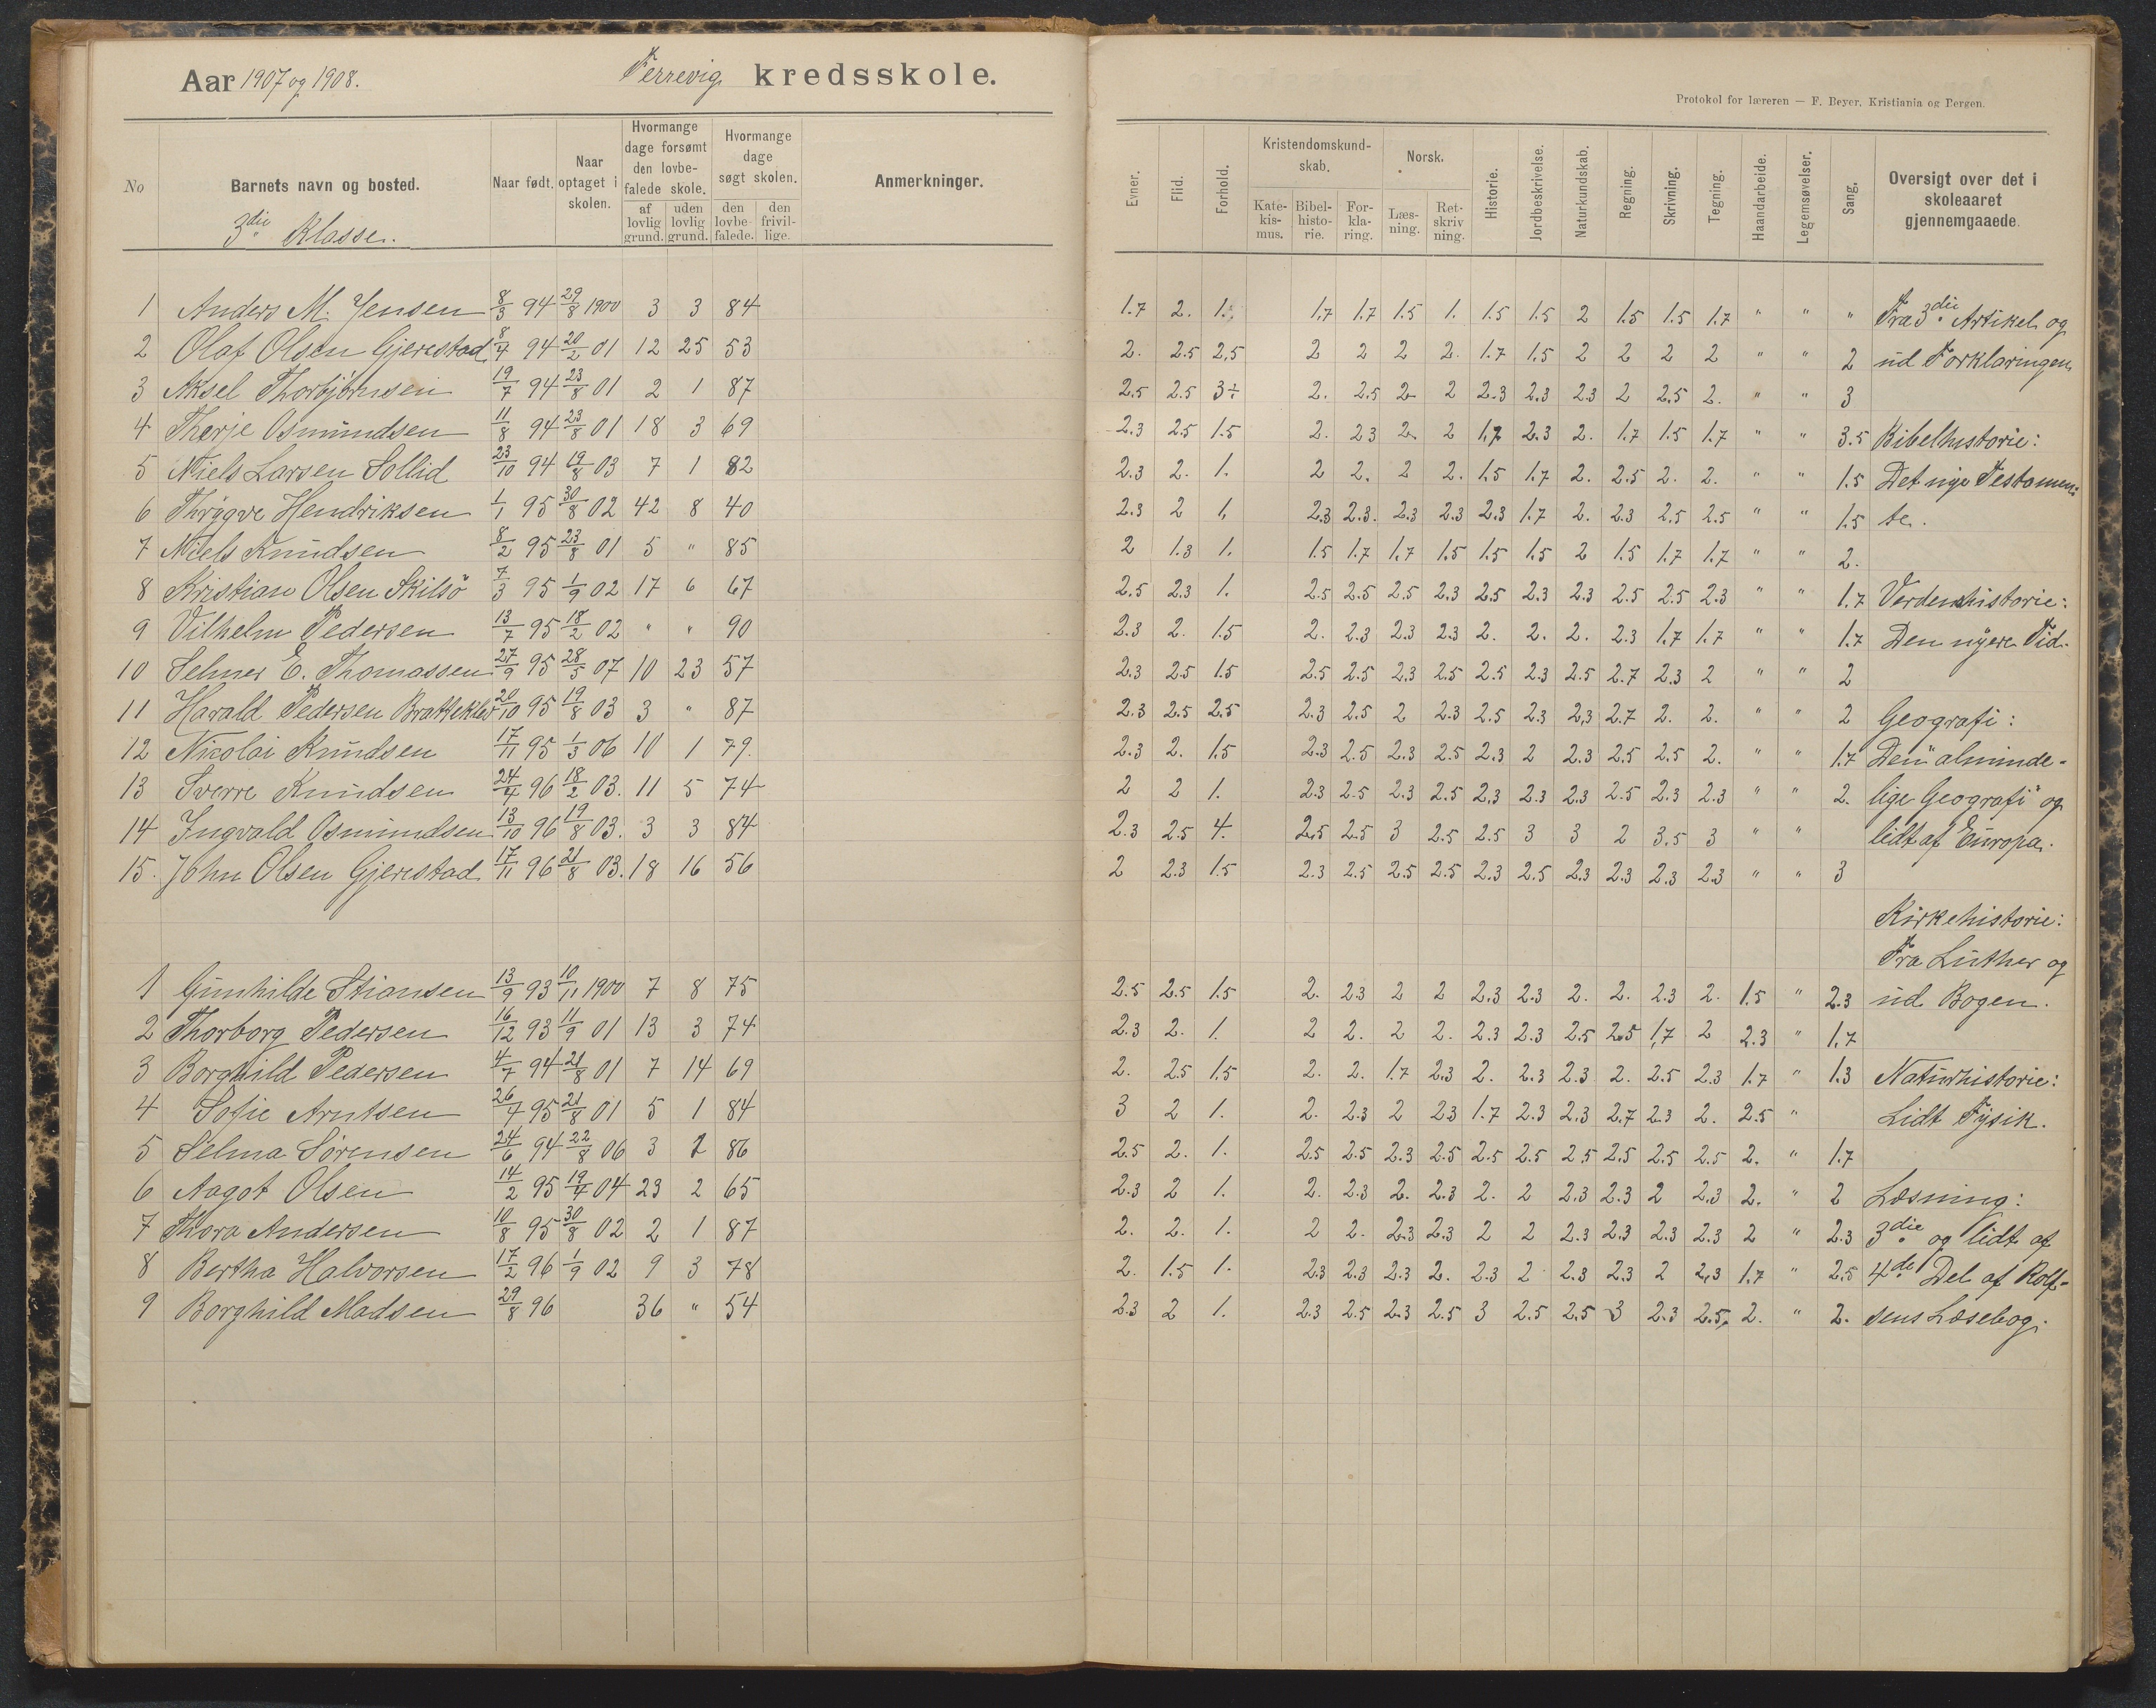 Aar 1907 og 1908. Ferrevig kredsskole.
No Barnets navn og bosted. Naar født. Naar optaget i skolen. Hvormange dage forsømt den lovbefalede skole. af lovlig grund. uden lovlig grund. Hvormange dage søgt skolen. den lovbefalede. den frivillige. Anmerkninger.
3die Klasse.
1 Anders M. Jensen 8/3 94 29/8 1900 3 3 84
2 Olaf Olsen Gjerestad 8/4 94 20/2 01 12 25 53
3 Aksel Thorbjørnsen 19/7 94 23/8 01 2 1 87
4 Therje Osmundsen 11/8 94 23/8 01 18 3 69
5 Niels Larsen Sollid 23/10 94 19/8 03 7 1 82
6 Thrygve Hendriksen 1/1 95 30/8 02 42 8 40
7 Niels Knudsen 8/2 95 23/8 01 5 " 85
8 Kristian Olsen Skilsö 7/3 95 1/9 02 17 6 67
9 Vilhelm Pedersen 13/7 95 18/2 02 " " 90
10 Selmer E. Thomassen 27/9 95 28/5 07 10 23 57
11 Harald Pedersen Bratteklev 20/10 95 19/8 03 3 " 87
12 Nikolai Knudsen 17/11 95 1/3 06 10 1 79.
13 Sverre Knudsen 24/4 96 18/2 03. 11 5 74
14 Ingvald Osmundsen 13/10 96 19/8 03. 3 3 84
15. John Olsen Gjerestad 17/11 96 21/8 03. 18 16 56
1 Gunhilde Stiansen 13/9 93 10/11 1900 7 8 75
2 Thorborg Pedersen 16/12 93 11/9 01 13 3 74
3 Borghild Pedersen 4/7 94 21/8 01 7 14 69
4 Sofie Arntsen 26/7 95 21/8 01 5 1 84
5 Selma Sørensen 24/6 94 22/8 06 3 1 86
6 Aagot Olsen 14/2 95 19/4 04 23 2 65
7 Thora Andersen 10/8 95 30/8 02 2 1 87
8 Bertha Halvorsen 17/2 96 1/9 02 9 3 78
9 Borghild Madsen 29/8 96 36 " 54
Protokol for læreren — F. Beyer, Kristiania og Bergen.
Evner. Flid. Forhold. Kristendomskundskab. Katekismus. Bibelhistorie. Forklaring. Norsk. Læsning. Retskrivning. Historie. Jordbeskrivelse. Naturkundskab. Regning. Skrivning. Tegning. Haandarbeide. Legemsøvelser. Sang. Oversigt over det i skoleaaret gjennemgaaede.
1.7 2. 1. 1.7 1.7 1.5 1. 1.5 1.5 2 1.5 1.5 1.7 " " " Fra 3die Artikel og
2. 2.5 2,5 2 2 2 2. 1.7 1.5 2 2 2 2 " " 2 ud Forklaringen
2.5 2.5 3÷ 2. 2.5 2 2 2.3 2.3 2.3 2 2.5 2. " " 3
2.3 2.5 1.5 2. 2.3 2. 2 1.7 2.3 2. 1.7 1.5 1.7 " " 3.5 Bibelhistorie:
2.3 2. 1. 2 2. 2 2. 1.5 1.7 2. 2.5 2. 2. " " 1.5 Det nye Testamen-
2.3 2 1. 2.3 2.3. 2.3 2.3 2.3 1.7 2. 2.3 2.5 2.5 " " 1.5 te.
2 1.3 1. 1.5 1.7 1.7 1.5 1.5 1.5 2 1.5 1.7 1.7 " " 2.
2.5 2.3 1. 2.5 2.5 2.5 2.3 2.5 2.3 2.3 2.5 2.5 2.3 " " 1.7 Verdenshistorie:
2.3 2. 1.5 2. 2.3 2.3 2.3 2. 2. 2. 2.3 1.7 1.7 " " 1.7 Den nyere Tid.
2.3 2.5 1.5 2.5 2.5 2.3 2.5 2.5 2.3 2.5 2.7 2.3 2 " " 2
2.3 2.5 2.5 2.3 2.5 2 2.3 2.5 2.3 2,3 2.7 2. 2. " " 2 Geografi:
2.3 2. 1.5 2.3 2.5 2.3 2.5 2.3 2 2.3 2.5 2.5 2. " " 1.7 Den "alminde-
2 2 1. 2.3 2.5 2.3 2.5 2,3 2.3 2.3 2.5 2.3 2.3 " " 2. lige Geografi" og
2.3 2.5 4. 2.5 2.5 3 2.5 2.5 3 3 2 3.5 3 " " lidt af Europa.
2 2.3 1.5 2.3 2.5 2.5 2.5 2.3 2.5 2.3 2.3 2.3 2.3 " " 3
Kirkehistorie:
Fra Luther og
2.5 2.5 1.5 2. 2.3 2 2 2.3 2.3 2. 2. 2.3 2. 1.5 " 2.3 ud Bogen.
2.3 2. 1. 2 2. 2 2. 2.3 2.3 2.5 2.5 1,7 2 2.3 " 1.7
2. 2.5 1.5 2. 2. 1.7 2.3 2. 2.3 2.3 2. 2.5 2.3 1.7 " 1.3 Naturhistorie:
3 2 1. 2. 2.3 2 2.3 1.7 2.3 2.3 2.7 2.3 2. 2.5 " Lidt Fysik.
2.5 2. 1. 2.5 2.5 2.3 2.5 2.5 2.5 2.5 2.5 2.5 2.5 2. " 1.7
2.3 2 1. 2. 2.3 2. 2.3 2. 2 2.3 2.3 2 2.3 2. " 2 Læsning:
2. 2. 1. 2 2. 2.3 2.3 2 2 2.3 2.3 2.3 2.3 2 " 2.3 3die og lidt af
2. 1.5 1. 2.3 2.3 2.3 2. 2.3 2 2.3 2.3 2 2,3 1.7 " 2.5 4de Del af Rolf-
2.3 2 1. 2.3 2.5 2.3 2.5 3 2.5 2.5 3 2.3 2.5, 2. " 2. sens Læsebog.